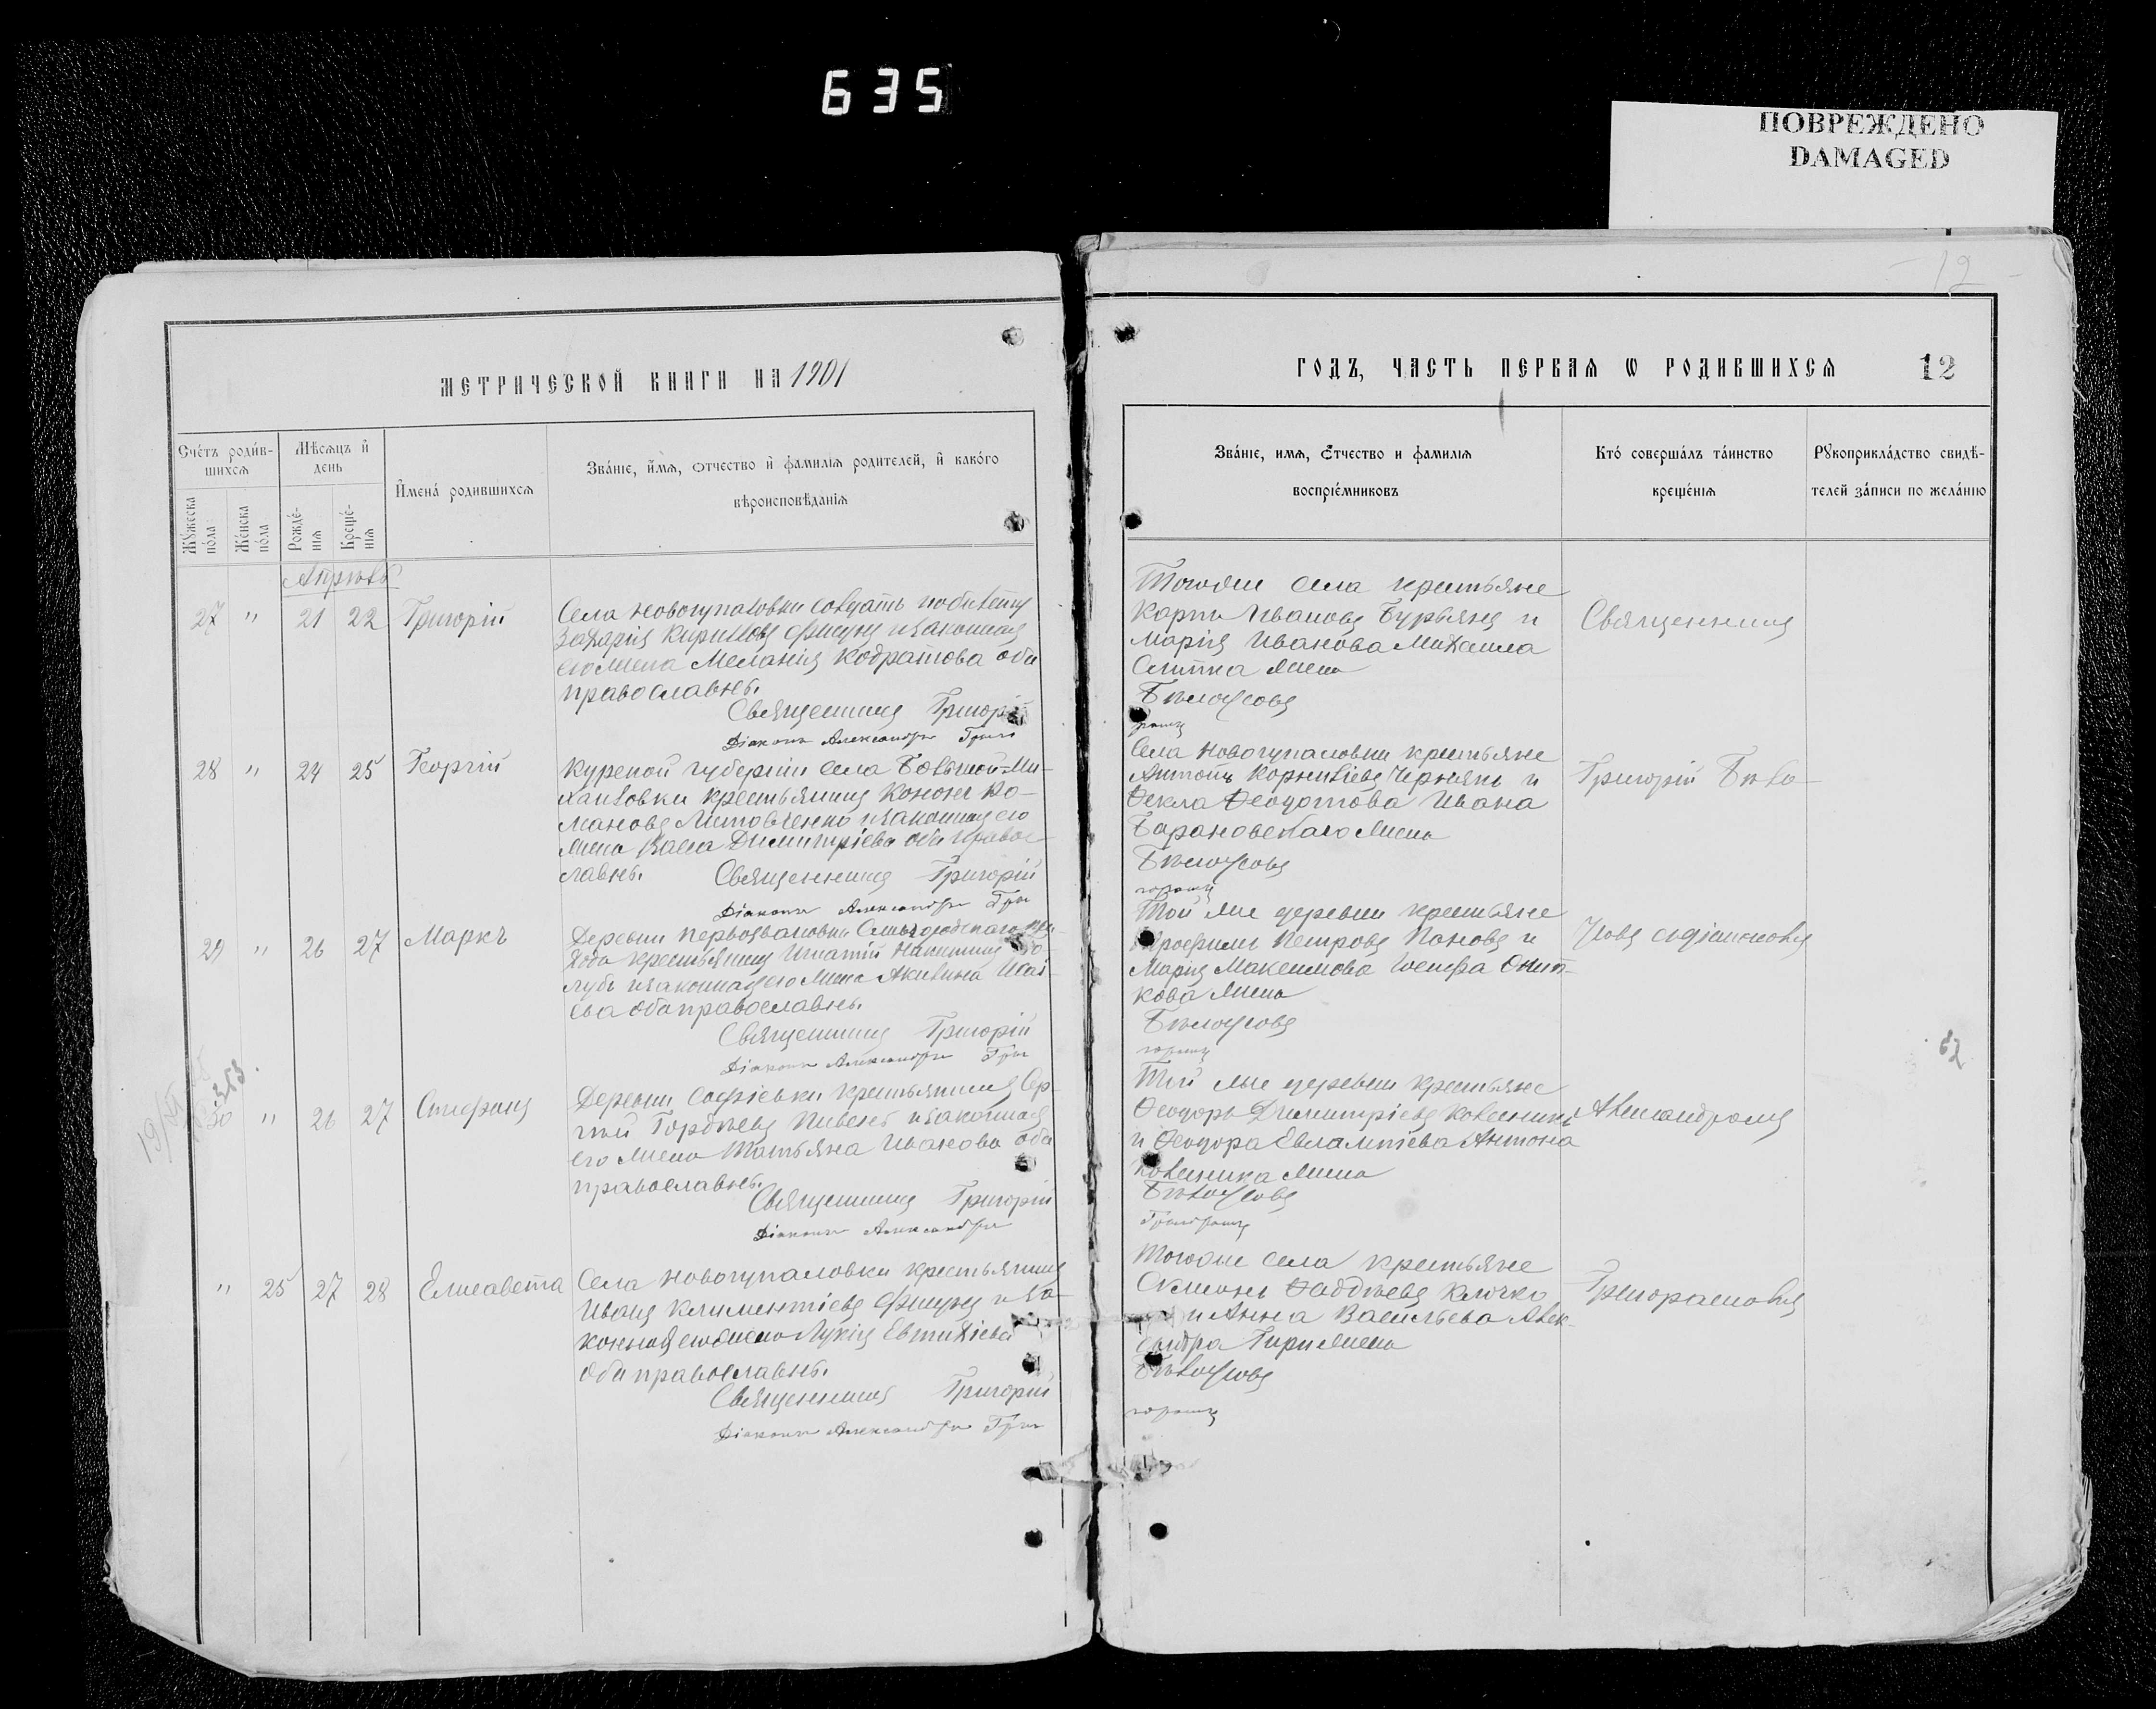 635
ПОВРЕЖДЕНО
DAMAGED
12
МЕТРИЧЕСКОЙ КНИГИ НА 1901
ГОДЪ, ЧАСТЬ ПЕРВАЯ Ѡ РОДИВШИХСЯ 12
Счётъ родив-
шихся
Мѣсяцъ и
день
Имена родившихся
Званіе, имя, отчество и фамилія родителей, и какого
вѣроисповѣданія
Мужеска
пола
Женска
пола
Рожде-
нія
Креще-
нія
Званіе, имя, Отчество и фамилія
воспріемниковъ
Кто совершалъ таинство
крещенія
Рукоприкладство свидѣ-
телей записи по желанію
Апрѣль
27 " 21 22 Григорій
Села Новогупаловки солдатъ по билету
Захарія Кирилловъ Фисунъ и законная
его жена Меланія Кодратова оба
православны.
Священникъ Григорій
Діаконъ Александръ
Тогоже села крестьяне
Карпъ Ивановъ Бурьянъ и
Марія Иванова Михаила
жена
Бѣлоусовъ
Священникъ
28 " 24 25 Георгій
Курской губерніи села Большой-Ми-
хайловки крестьянинъ Кононъ Ро-
мановъ Литовченко и законная его
жена Васса Димитріева оба правос-
лавны. Священникъ Григорій
Діаконъ Александръ
Села Новогупаловки крестьяне
Антонъ Корниліевъ Чернянъ и
Ѳекла Ѳеодотова Ивана
Барановскаго жена
Бѣлоусовъ
Григорій Бѣло-
29 " 26 27 Маркъ
Деревни Первозвановки
хода крестьянинъ Игнатій Никитинъ Го-
лубъ и законная его жена Акилина Исаі-
ева оба православны.
Священникъ Григорій
Діаконъ Александръ
Той же деревни крестьяне
Трофимъ Петровъ Пановъ и
Марія Максимова Іосифа Онит-
кова жена
Бѣлоусовъ
усовъ съ діакономъ
62
353.
30 " 26 27 Стефанъ
Деревни Софіевки крестьянинъ Сер-
гій Гордѣевъ Пивень и законная
его жена Татьяна Иванова оба
православны.
Священникъ Григорій
Діаконъ Александръ
Той же деревни крестьяне
Ѳеодоръ Димитріевъ Колесникъ
и Ѳеодора Евлампіева Антона
Колесника жена
Бѣлоусовъ
Александромъ
" 25 27 28 Елисавета
Села Новогупаловки крестьянинъ
Иванъ Климентіевъ Фисунъ и за-
конная его жена Лукія Евтихіева
оба православны.
Священникъ Григорій
Діаконъ Александръ
Тогоже села крестьяне
Симеонъ Фаддѣевъ Клочко
и Анна Васильева Алек-
сандра Гири жена
Бѣлоусовъ